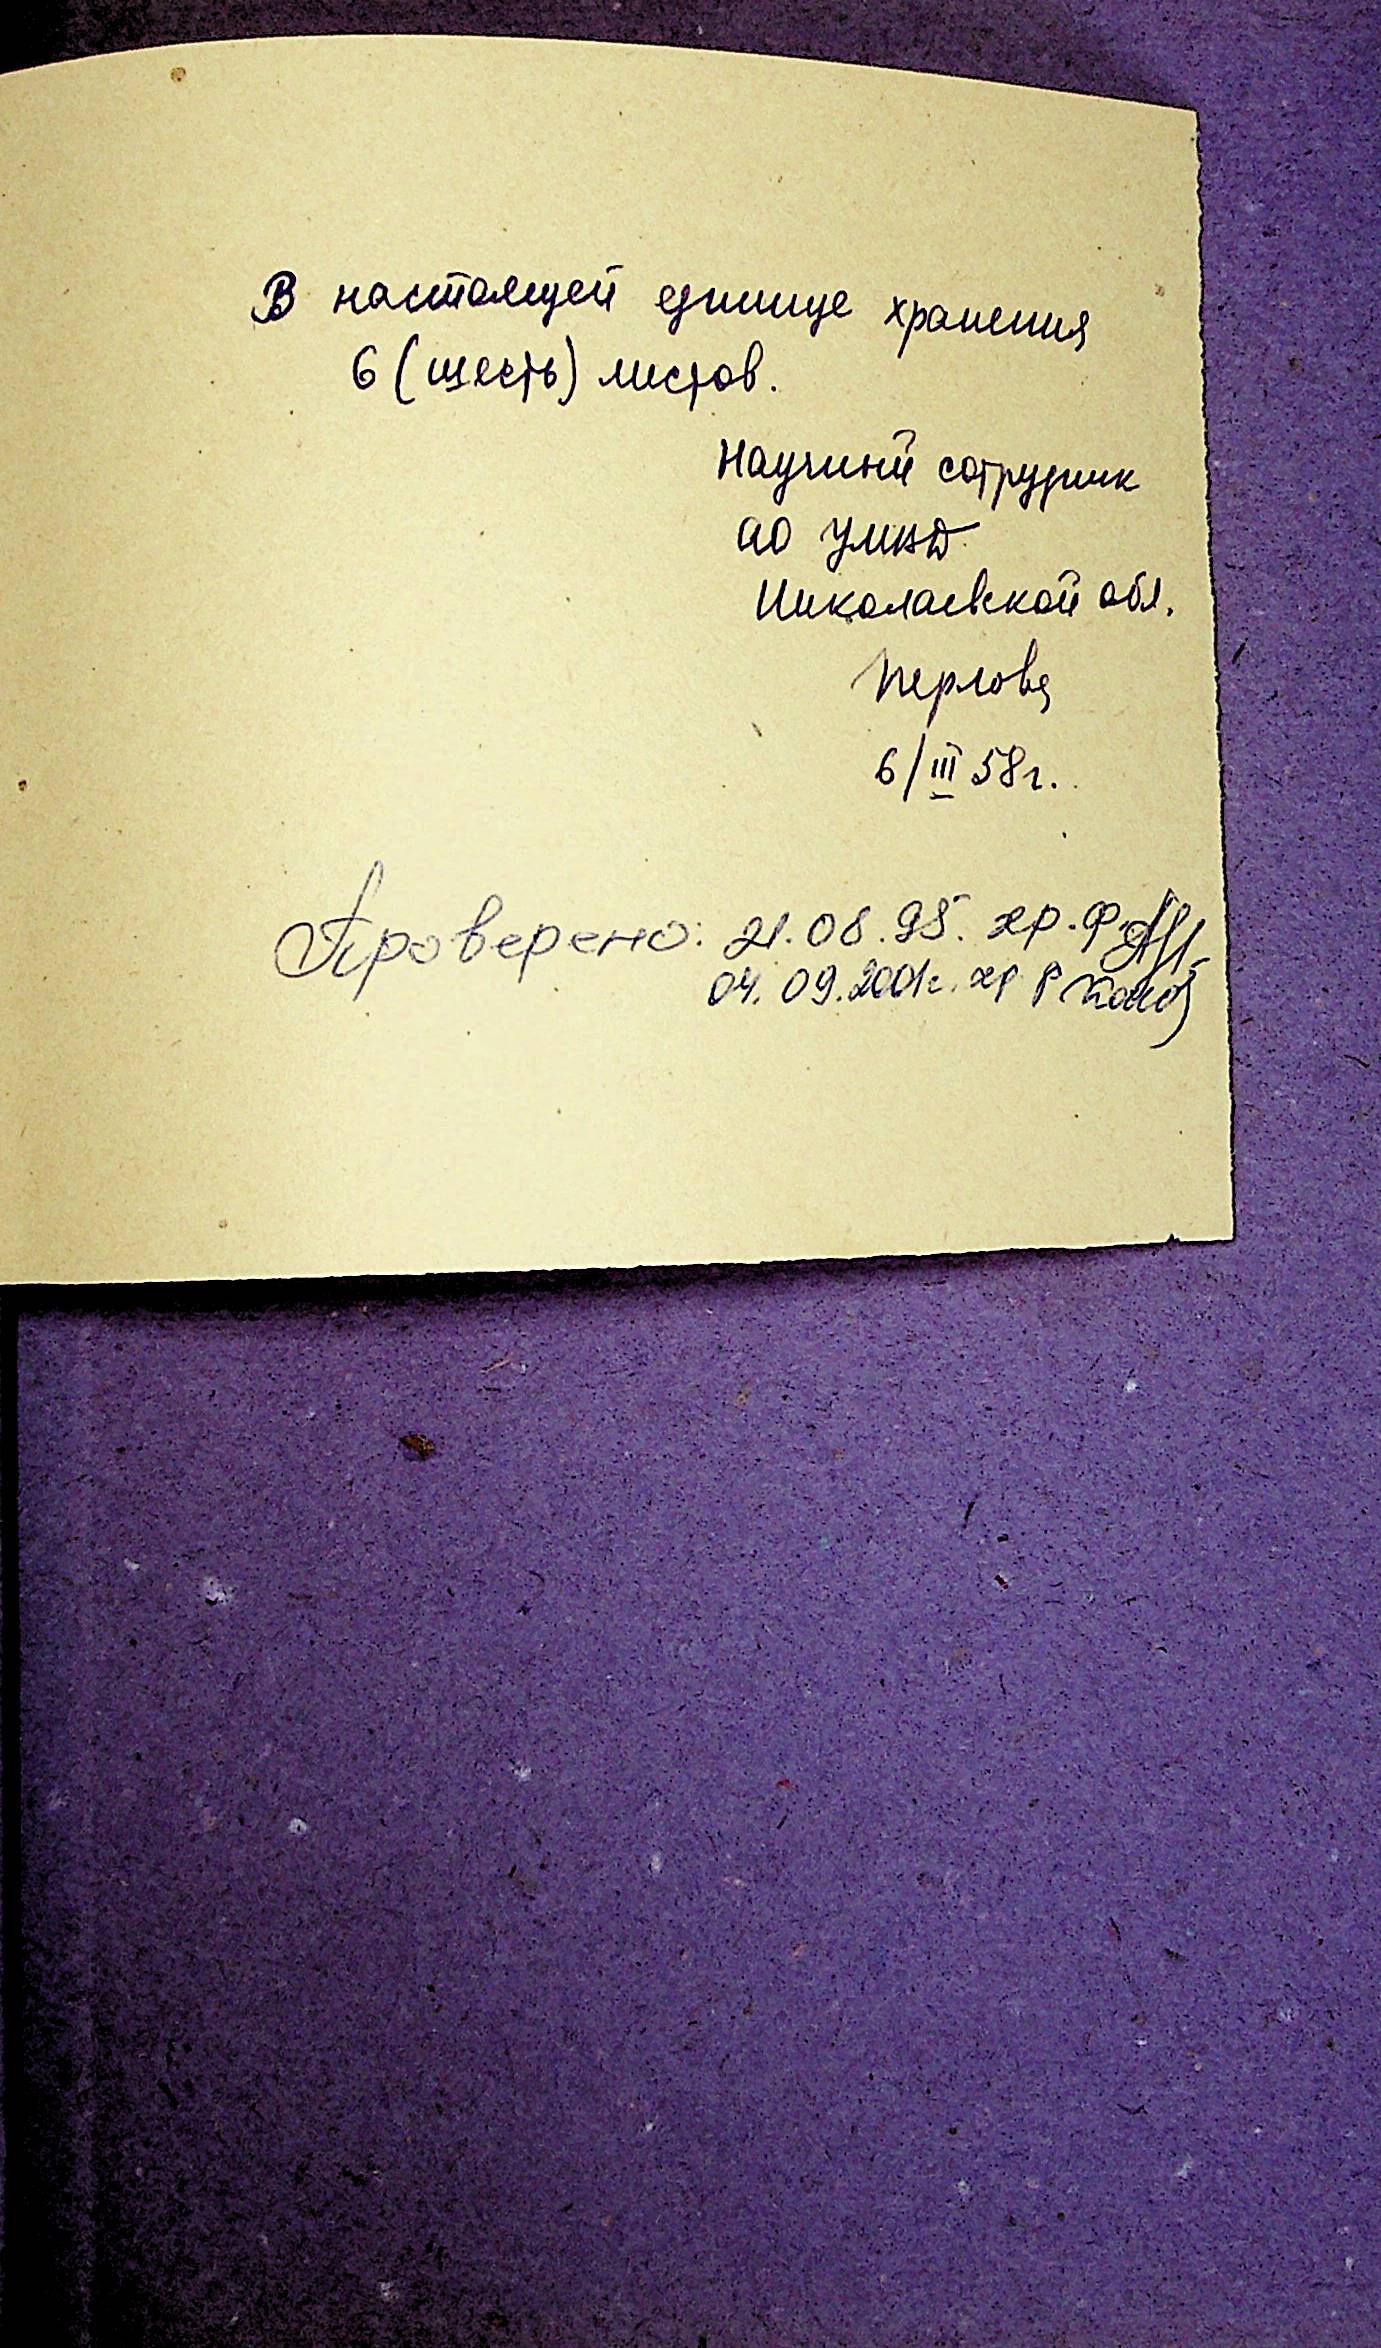 В настоящей единице хранения
6 (шесть) листов.
Научный сотрудник
АО УМВД
Николаевской обл.
Перлова
6/III 58г.
Проверено: 21.08.95. хр. ф.
04.09.2001г. хр